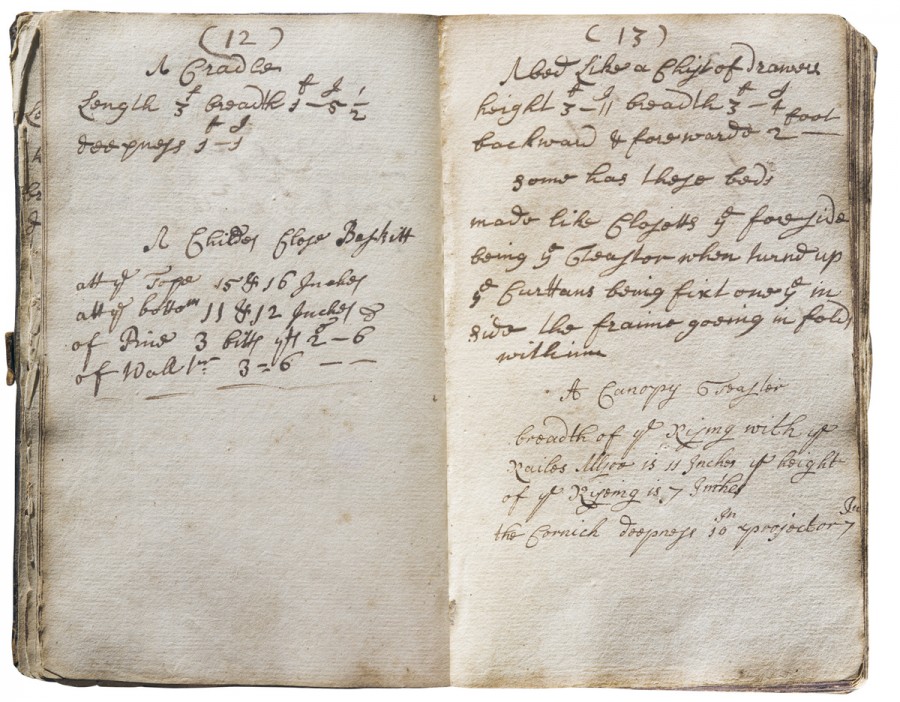 (12)
A Cradle
Length 3 f breadth 1 f - 5 I 1/2
deepness 1 f - 1 I
A Childes Close Baskitt
att ye Tope 15 & 16 Inches
att ye bottom 11 & 12 Inches
of Pine 3 bitts 2 - 6
of Wall 3 = 6 - -
(13)
A bed Like a Chist of Drawers
height 3 f - 11 I breadth 3 f - 4 I
backward & forewarde 2 foot
some has these beds
made like Closetts ye foreside
being ye Teaster when turnd up
ye Curttans being fixt one ye in
side the fraime goeing in folds
within
A Canopy Teaster
breadth of ye Rising with ye
Railes is 11 Inches ye height
of ye Riseing is 7 Inches
the Cornich deepness 10 In projector 7 In